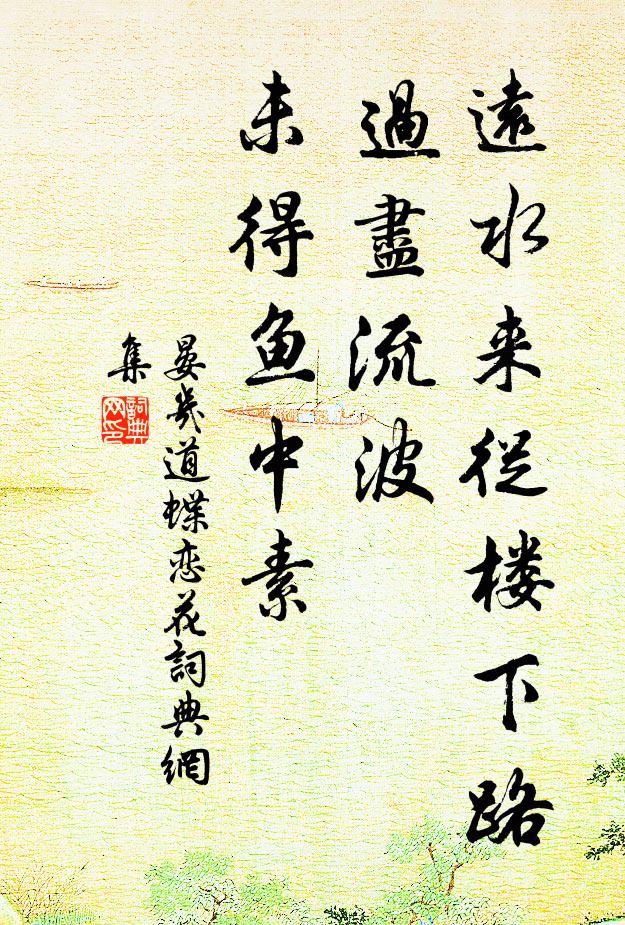 遠水来從楼下路
過盡流波
未得鱼中素
晏幾道蝶恋花詞典網
集
詞典网印